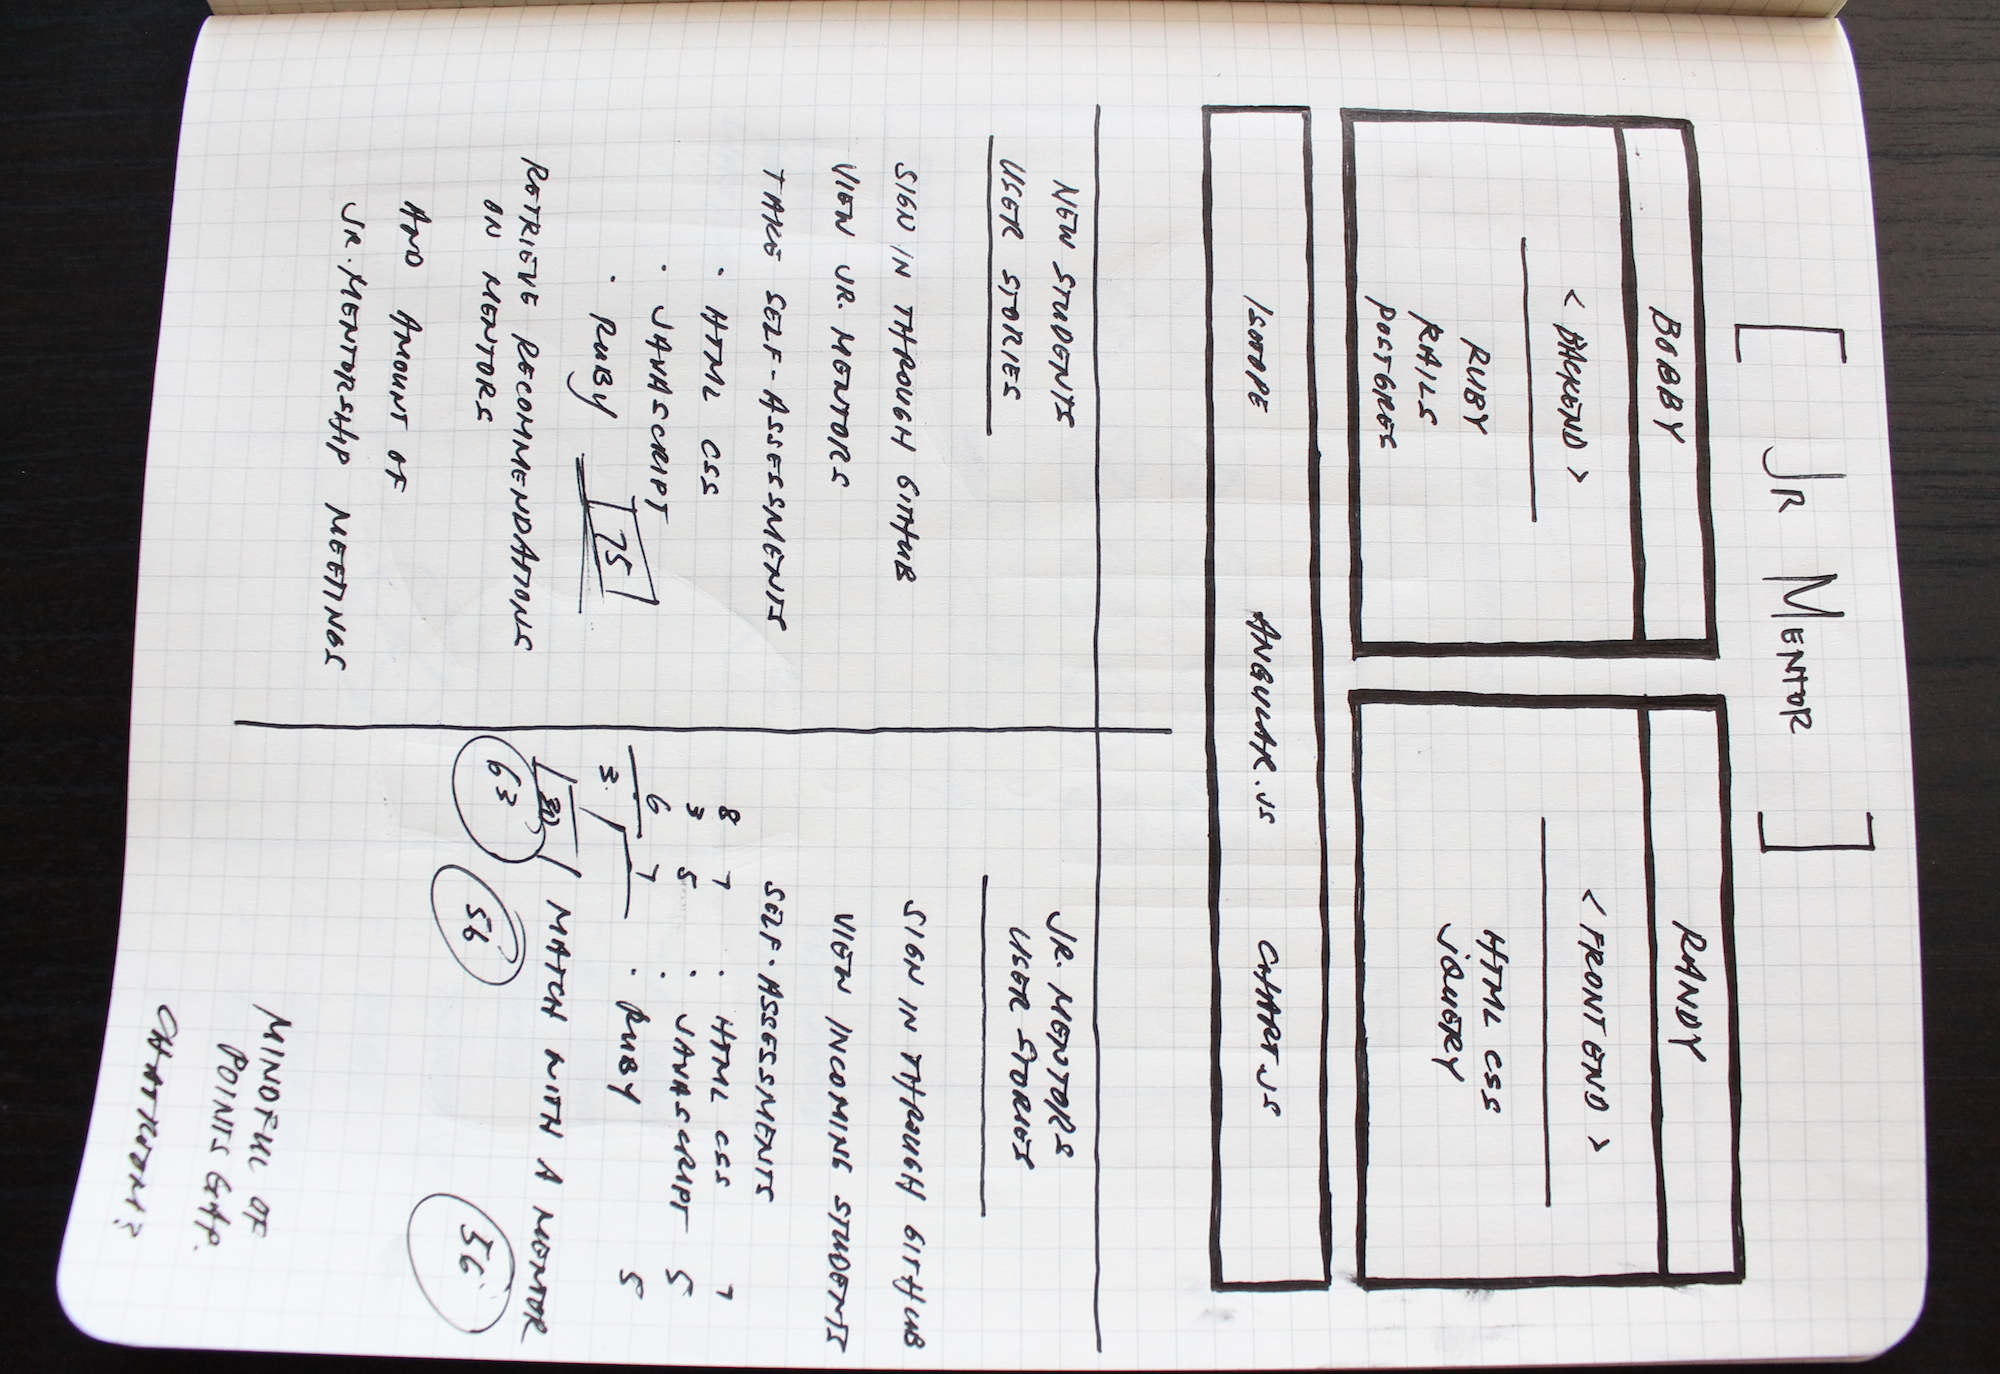 [ JR MENTOR ]
BOBBY
< BACKEND >
RUBY
RAILS
POSTGRES
RANDY
< FRONT END >
HTML CSS
JQUERY
ISOTOPE ANGULAR.JS CHART JS
NEW STUDENTS
USER STORIES
SIGN IN THROUGH GITHUB
VIEW JR. MENTORS
TAKE SELF-ASSESSMENTS
· HTML CSS
· JAVASCRIPT
· RUBY
75
RETRIEVE RECOMMENDATIONS
ON MENTORS
AND AMOUNT OF
JR. MENTORSHIP MEETINGS
JR. MENTORS
USER STORIES
SIGN IN THROUGH GITHUB
VIEW INCOMING STUDENTS
SELF-ASSESSMENTS
8 7 · HTML CSS 7
3 5 · JAVASCRIPT 5
6 7 · RUBY 5
3
MATCH WITH A MENTOR
63 56 56
MINDFUL OF
POINTS GAP.
CHATROOM?